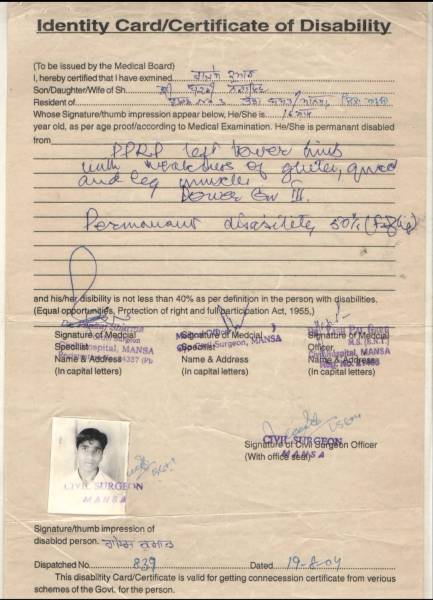 Identity Card/Certificate of Disability
(To be issued by the Medical Board)
I, hereby certified that I have exmined. ਰਾਜੇਸ਼ ਕੁਮਾਰ
Son/Daughter/Wife of Sh. ਸ੍ਰੀ
Resident of
Whose Signature/thumb impression appear below, He/She is
year old, as per age proof/according to Medical Examination. He/She is permanant disabled
from
PPRP left lower limb
with weakness of gluteu, quad
and leg muscle
Power Gr III.
Permanant disability 50% (Fifty)
and his/her disibility is not less than 40% as per definition in the person with disabilities.
(Equal opportunities, Protection of right and full participation Act, 1955,)
Signature of Medcial
Specilist
Name & Address
(In capital letters)
Hospital, MANSA
Signature of Medcial
Specilist
Name & Address
(In capital letters)
Civil Surgeon, MANSA
Signature of Medcial
Officer,
Name & Address
(In capital letters)
M.S. (E.N.T.)
Civil Hospital, MANSA
CIVIL SURGEON
Signature of Civil Surgeon Officer
(With office seal)
MANSA
CIVIL SURGEON
MANSA
Signature/thumb impression of
disablod person. ਰਾਜੇਸ਼ ਕੁਮਾਰ
Dispatched No. 839 Dated 19-8-04
This disabitity Card/Certificate is valid for getting connecession certificate from verious
schemes of the Govt. for the person.